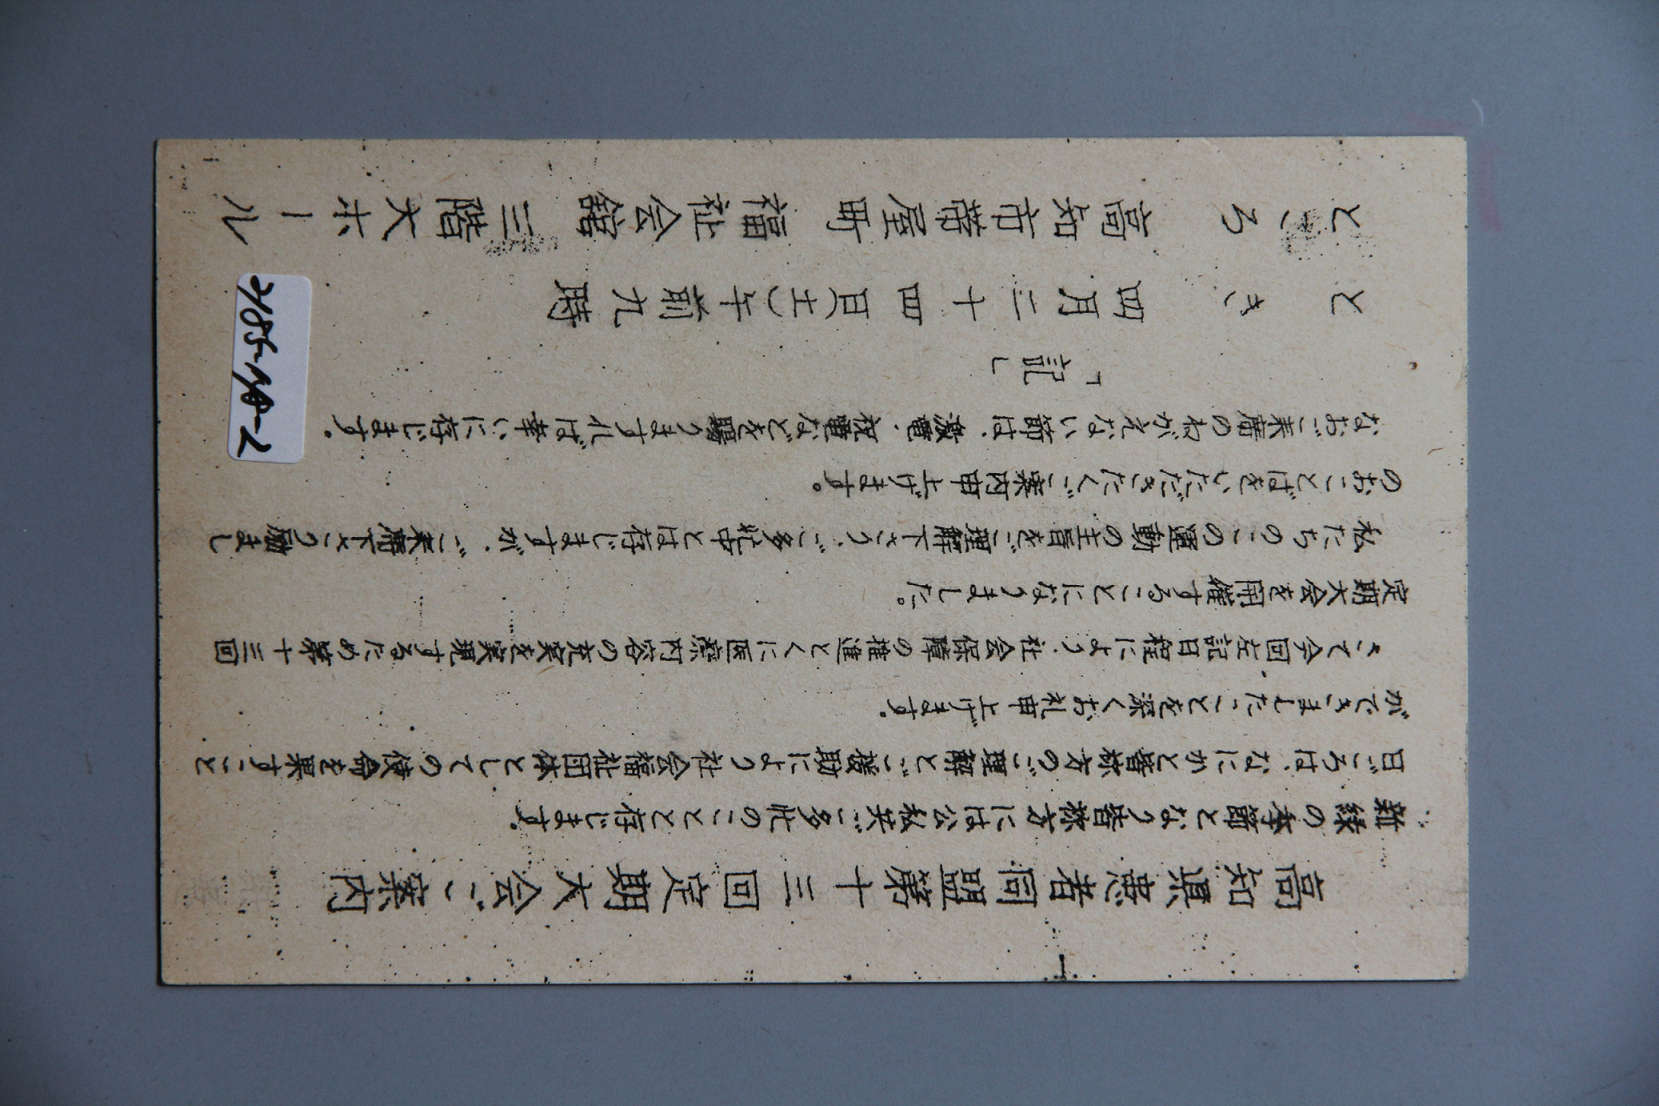 高知県患者同盟第十三回定期大会ご案内
新緑の季節となり皆様方には公私共ご多忙のことと存じます。
日ごろは、なにかと皆様方のご理解とご援助により社会福祉団体としての使命を果すこと
ができましたことを深くお礼申上げます。
さて今回左記日程により、社会保障の推進とくに医療内容の充実を実現するため第十三回
定期大会を開催することになりました。
私たちのこの運動の主旨をご理解下さり、ご多忙中とは存じますが、ご来席下さり励まし
のおことばをいただきたくご案内申上げます。
なおご来席のねがえない節は、激電、祝電などを賜りますれば幸いに存じます。
「記」
とき 四月二十四日(土)午前九時
ところ 高知市帯屋町 福祉会館 三階大ホール